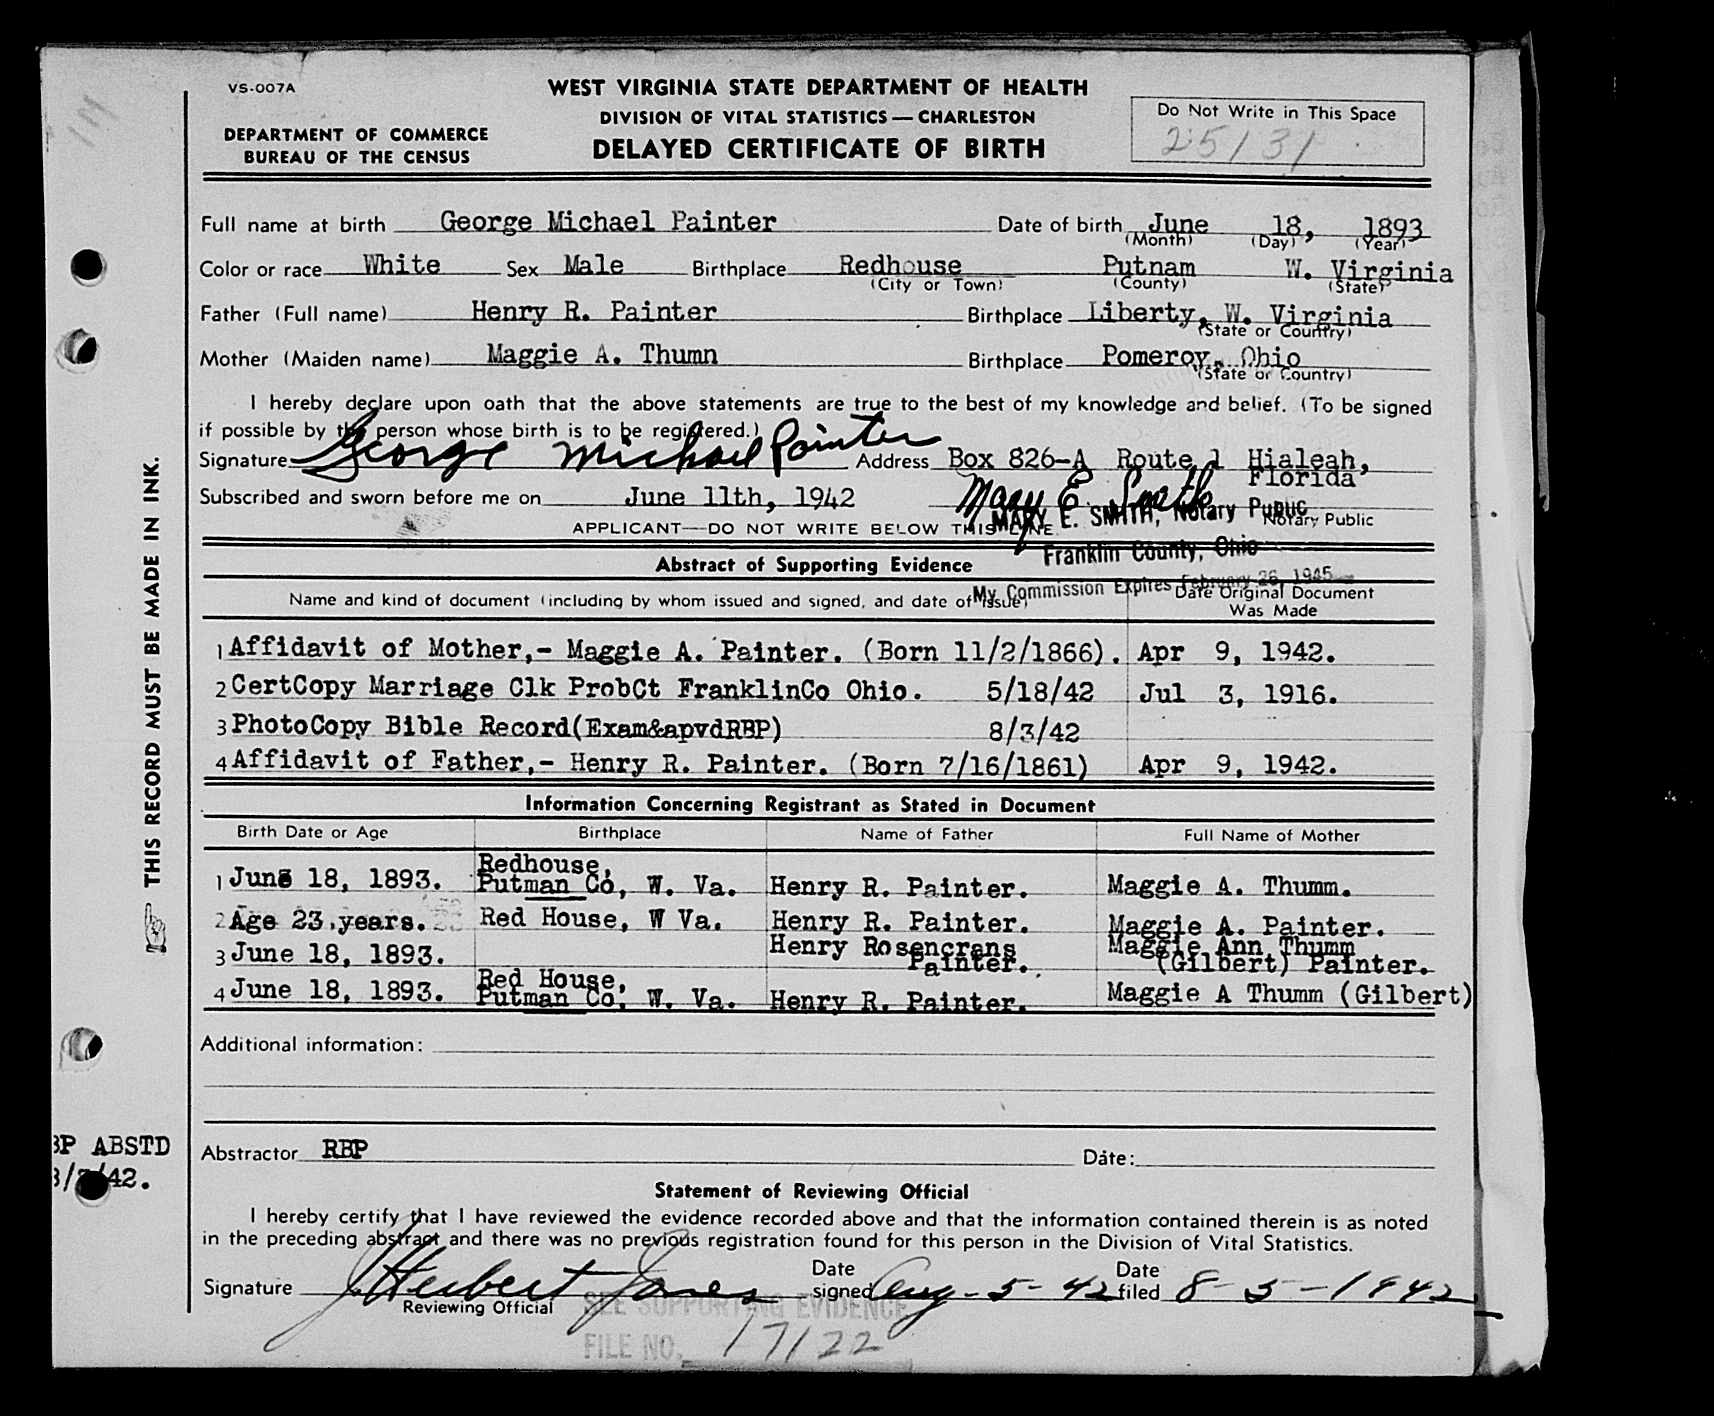 VS-007A
WEST VIRGINIA STATE DEPARTMENT OF HEALTH
DIVISION OF VITAL STATISTICS — CHARLESTON
DEPARTMENT OF COMMERCE
BUREAU OF THE CENSUS
DELAYED CERTIFICATE OF BIRTH
Do Not Write in This Space
25131
Full name at birth George Michael Painter Date of birth June 18, 1893
(Month) (Day) (Year)
Color or race White Sex Male Birthplace Redhouse Putnam W. Virginia
(City or Town) (County) (State)
Father (Full name) Henry R. Painter Birthplace Liberty, W. Virginia
(State or Country)
Mother (Maiden name) Maggie A. Thumn Birthplace Pomeroy, Ohio
(State or Country)
I hereby declare upon oath that the above statements are true to the best of my knowledge and belief. (To be signed
if possible by the person whose birth is to be registered.)
Signature George Michael Painter Address Box 826-A Route 1 Hialeah,
Florida
Subscribed and sworn before me on June 11th, 1942 Mary E. Smith
MARY E. SMITH, Notary Public
Notary Public
APPLICANT—DO NOT WRITE BELOW THIS LINE
Franklin County, Ohio
Abstract of Supporting Evidence
My Commission Expires February 26, 1945
Name and kind of document (including by whom issued and signed, and date of issue) Date Original Document
Was Made
1 Affidavit of Mother,- Maggie A. Painter. (Born 11/2/1866). Apr 9, 1942.
2 CertCopy Marriage Clk ProbCt FranklinCo Ohio. 5/18/42 Jul 3, 1916.
3 PhotoCopy Bible Record(Exam&apvdRBP) 8/3/42
4 Affidavit of Father,- Henry R. Painter. (Born 7/16/1861) Apr 9, 1942.
Information Concerning Registrant as Stated in Document
Birth Date or Age Birthplace Name of Father Full Name of Mother
Redhouse,
1 June 18, 1893. Putman Co, W. Va. Henry R. Painter. Maggie A. Thumm.
2 Age 23 years. Red House, W Va. Henry R. Painter. Maggie A. Painter.
3 June 18, 1893. Henry Rosencrans Maggie Ann Thumm
Painter. (Gilbert) Painter.
Red House,
4 June 18, 1893. Putman Co. W. Va. Henry R. Painter. Maggie A Thumm (Gilbert)
Additional information:
Abstractor RBP Date:
BP ABSTD
/42.
Statement of Reviewing Official
I hereby certify that I have reviewed the evidence recorded above and that the information contained therein is as noted
in the preceding abstract and there was no previous registration found for this person in the Division of Vital Statistics.
Signature J Herbert Jones Date signed Aug-5-42 Date filed 8-5-1942
Reviewing Official
SEE SUPPORTING EVIDENCE
FILE NO. 17122
THIS RECORD MUST BE MADE IN INK.